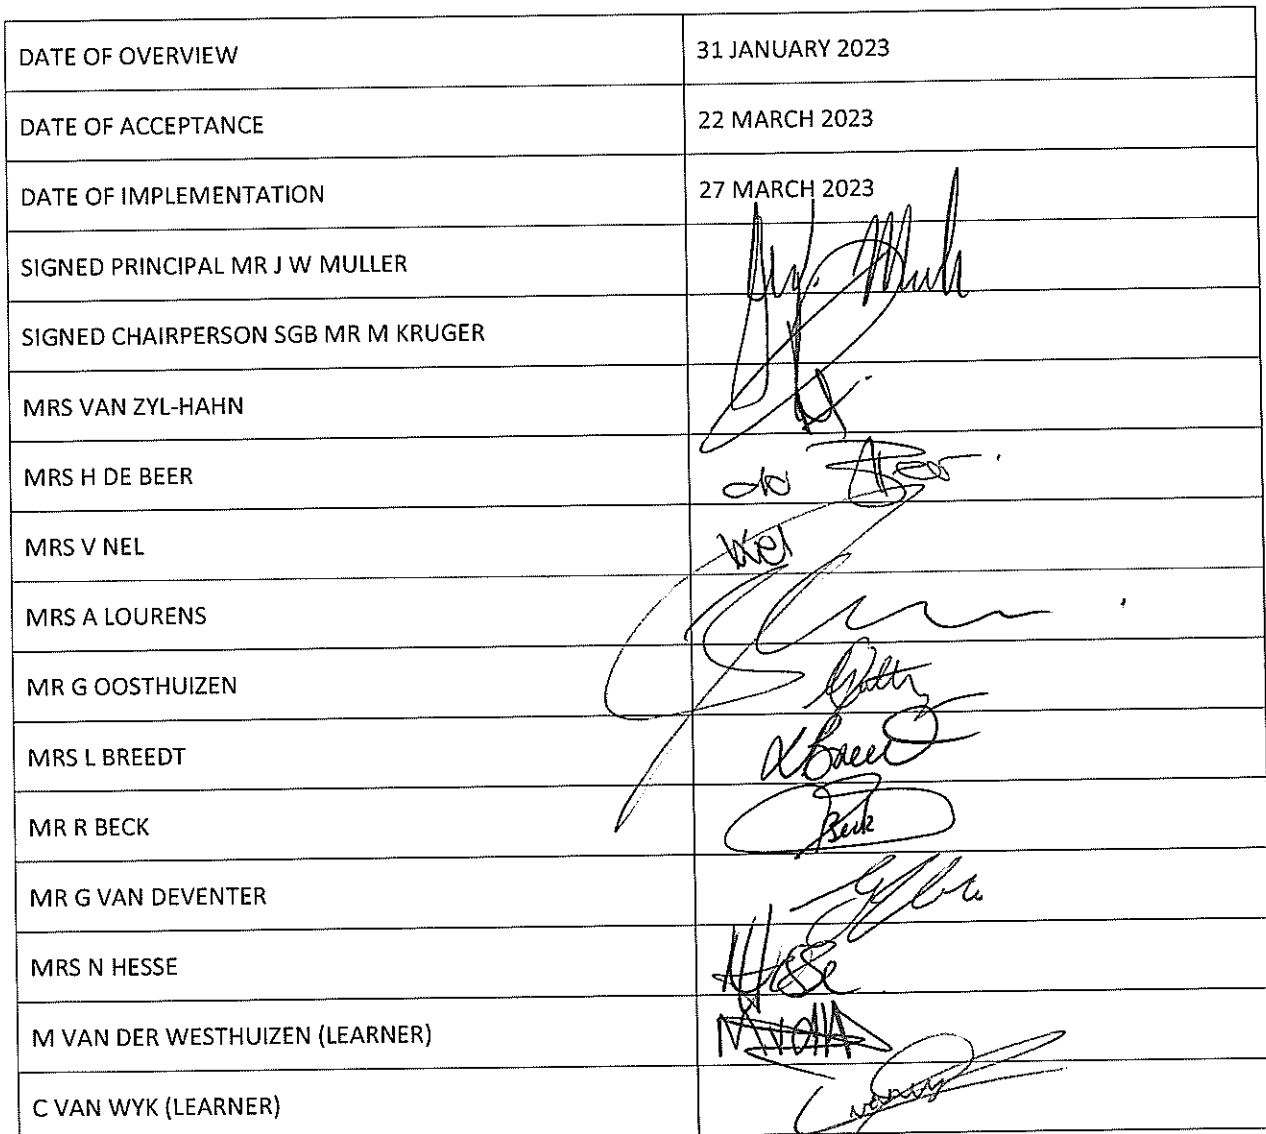 DATE OF OVERVIEW 31 JANUARY 2023
DATE OF ACCEPTANCE 22 MARCH 2023
DATE OF IMPLEMENTATION 27 MARCH 2023
SIGNED PRINCIPAL MR J W MULLER
SIGNED CHAIRPERSON SGB MR M KRUGER
MRS VAN ZYL-HAHN
MRS H DE BEER de Beer
MRS V NEL VNel
MRS A LOURENS
MR G OOSTHUIZEN
MRS L BREEDT
MR R BECK Beck
MR G VAN DEVENTER
MRS N HESSE NHesse
M VAN DER WESTHUIZEN (LEARNER)
C VAN WYK (LEARNER)